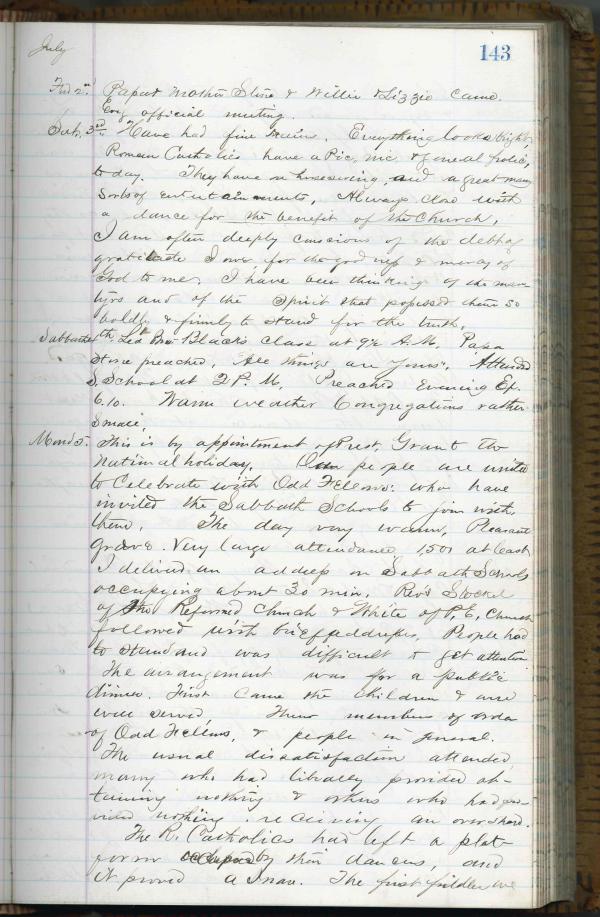 July
143
Frid 2nd Papa & Mother Stone & Willie & Lizzie came.
Evg official meeting.
Sat. 3rd Have had fine rains. Everything looks bright,
Roman Catholics have a Pic, nic & general frolic,
to day. They have a horseswing, and a great many
sorts of entertainments, Always close with
a dance for the benefit of the Church,
I am often deeply conscious of the debt of
gratitude I owe for the goodness & mercy of
God to me, I have been thinking of the mar
tyrs and of the Spirit that possessed them so
boldly & firmly to stand for the truth,
Sabbath 4th, Led Bro Black's Class at 9½ A.M. Papa
Stone preached, "All things are yours," Attended
S. School at 2 P. M, Preached Evening Ex.
6.10. Warm weather Congregations rather
small,
Mond 5. This is by appointment of Prest, Grant the
National holiday. Our people are invited
to Celebrate with Odd Fellows: who have
invited the Sabbath Schools to join with
them. The day very warm, Pleasant
grove. Very large attendance, 1,500 at least
I delivered an address on Sabbath Schools
occupying about 30 min. Rev's
of the Reformed Church & White of P, E, Church
followed with brief addresses, People had
to stand and was difficult to get attention
The arrangement was for a public
dinner. First came the Children & were
well served, Then members of order
of Odd Fellows, & people in general.
The usual dissatisfaction attended,
many who had liberally provided ob-
taining nothing & others who had pro-
vided nothing receiving an overshare.
The R. Catholics had left a plat-
form occupied by their dancers, and
it proved a snare. The first fiddler we